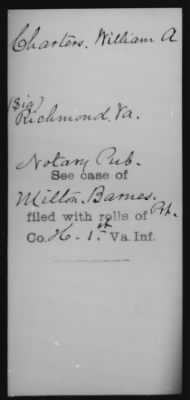 Charters. William A
(Sig)
Richmond. Va.
Notary Pub.
See case of
Milton. Barnes. Pvt.
filed with rolls of
Co. H - 1st Va. Inf.